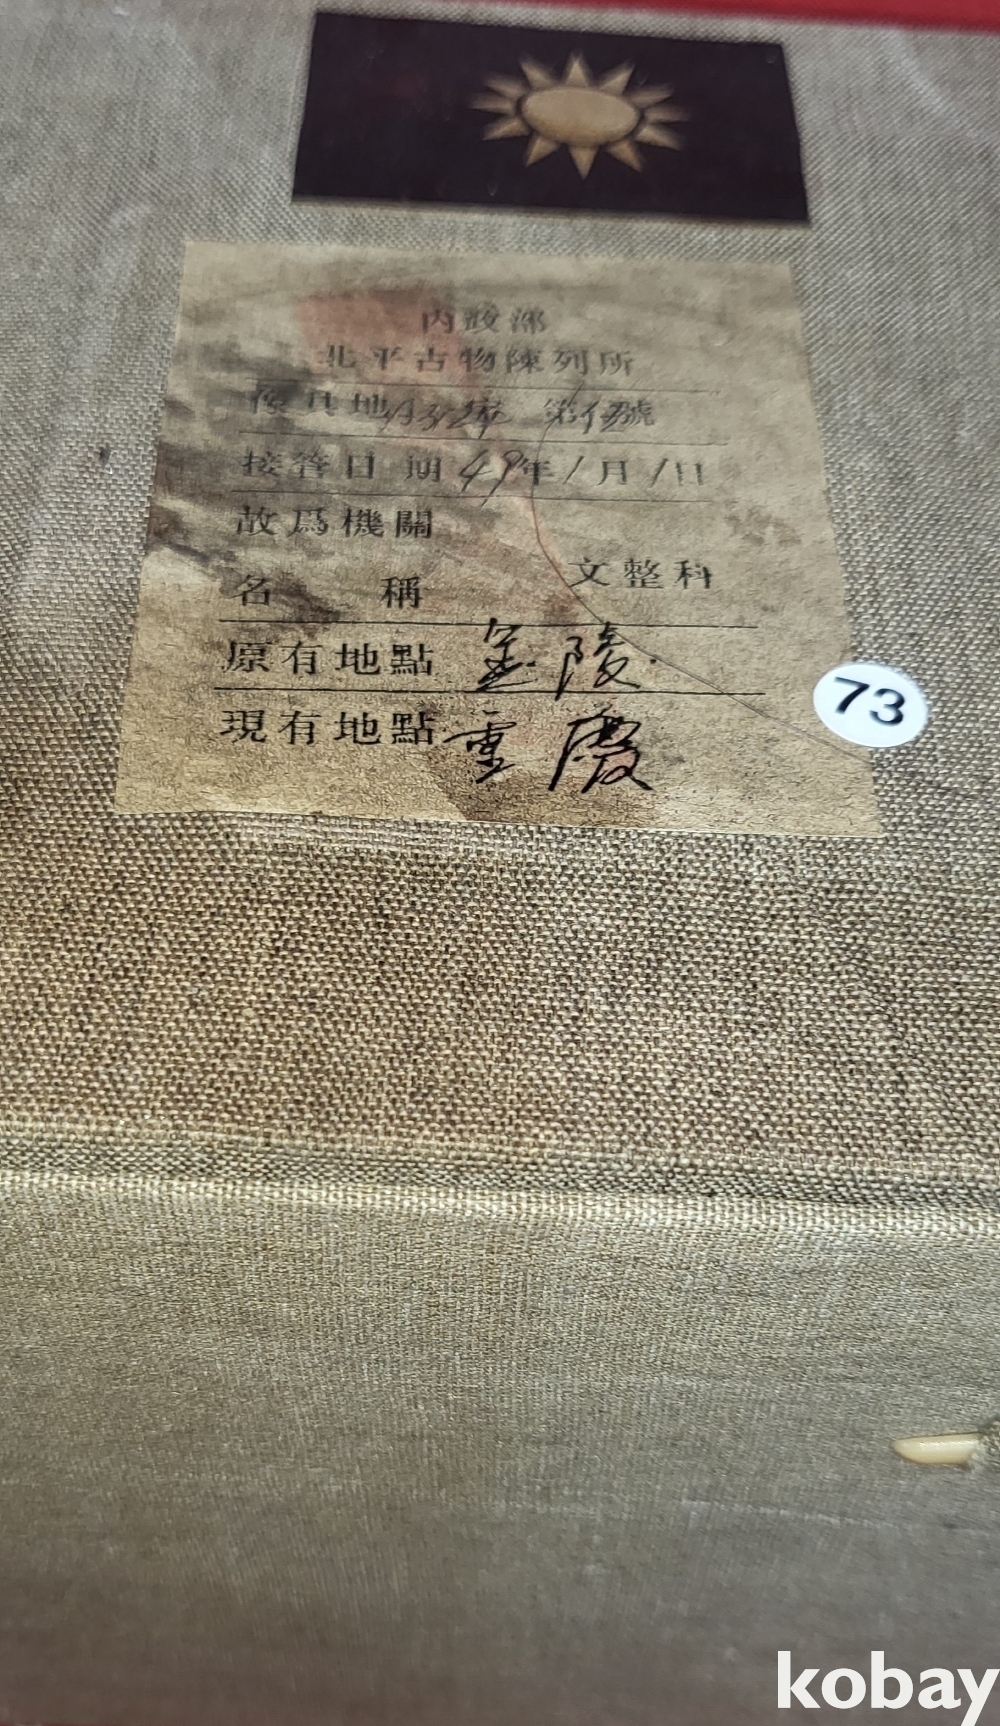 內政部
北平古物陳列所
第 號
接管日期 49年1月1日
故爲機關
文整科
名 稱
原有地點 金陵
現有地點 重慶
73
kobay